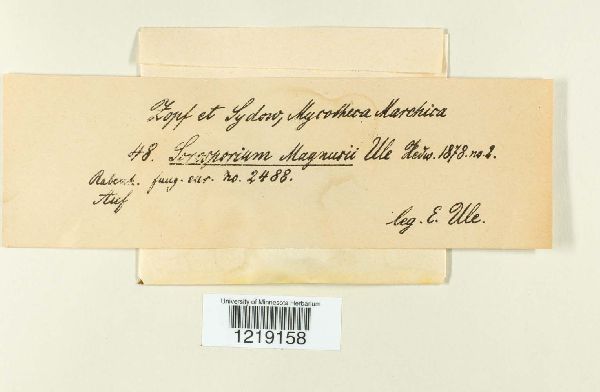 Zopf et Sydow, Mycotheca Marchica
48. Sorosporium Magnusii Ule Hedw. 1878. no 2.
Rabenh. fung. eur. no. 2488.
Auf
leg. E. Ule.
University of Minnesota Herbarium
1219158